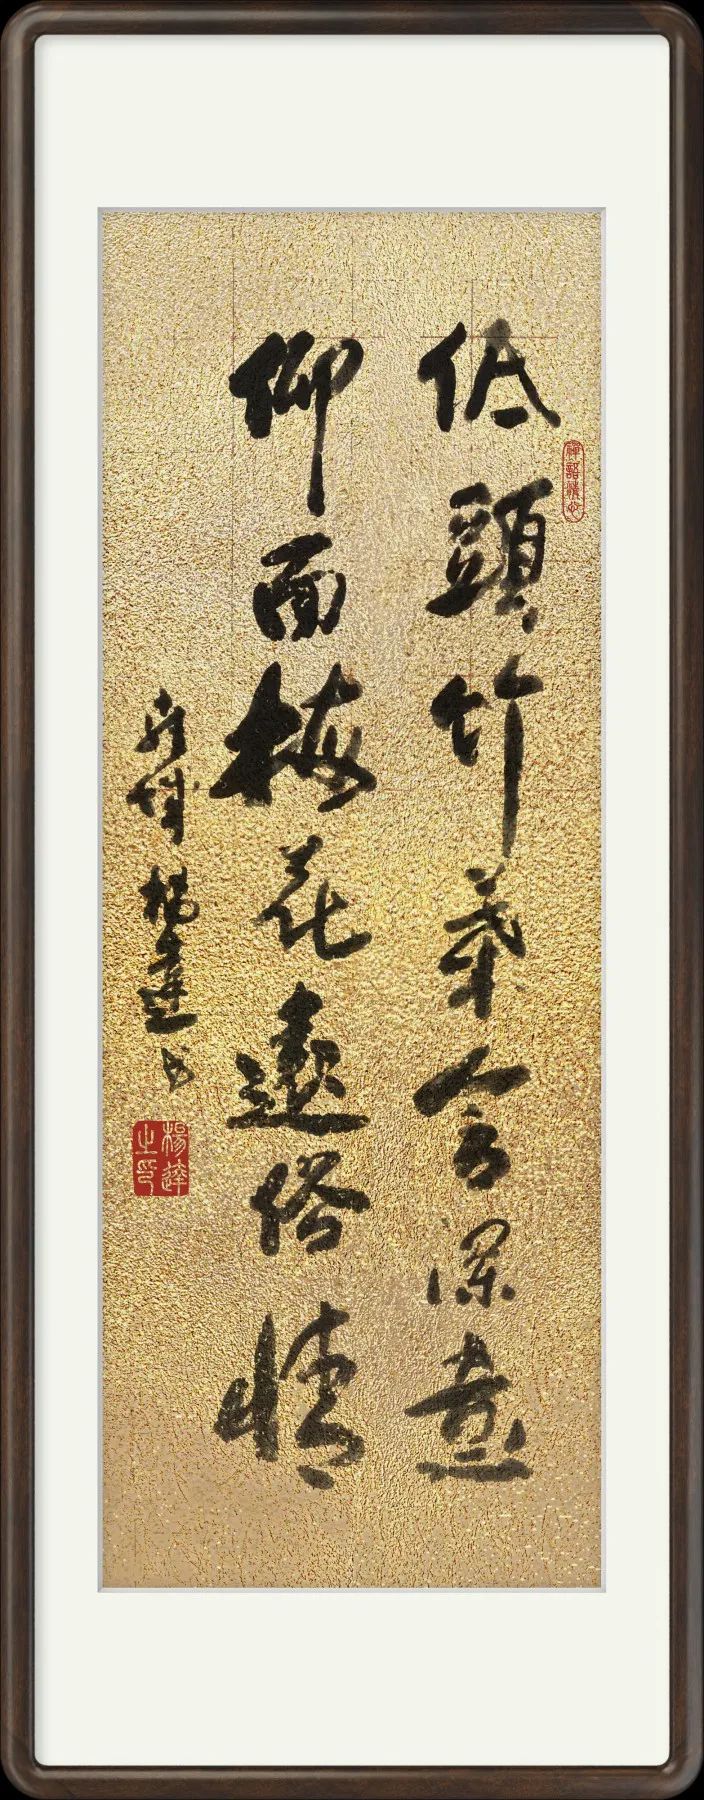 低頭竹葉含深意
仰面梅花遠俗情
楊達書
楊達之印